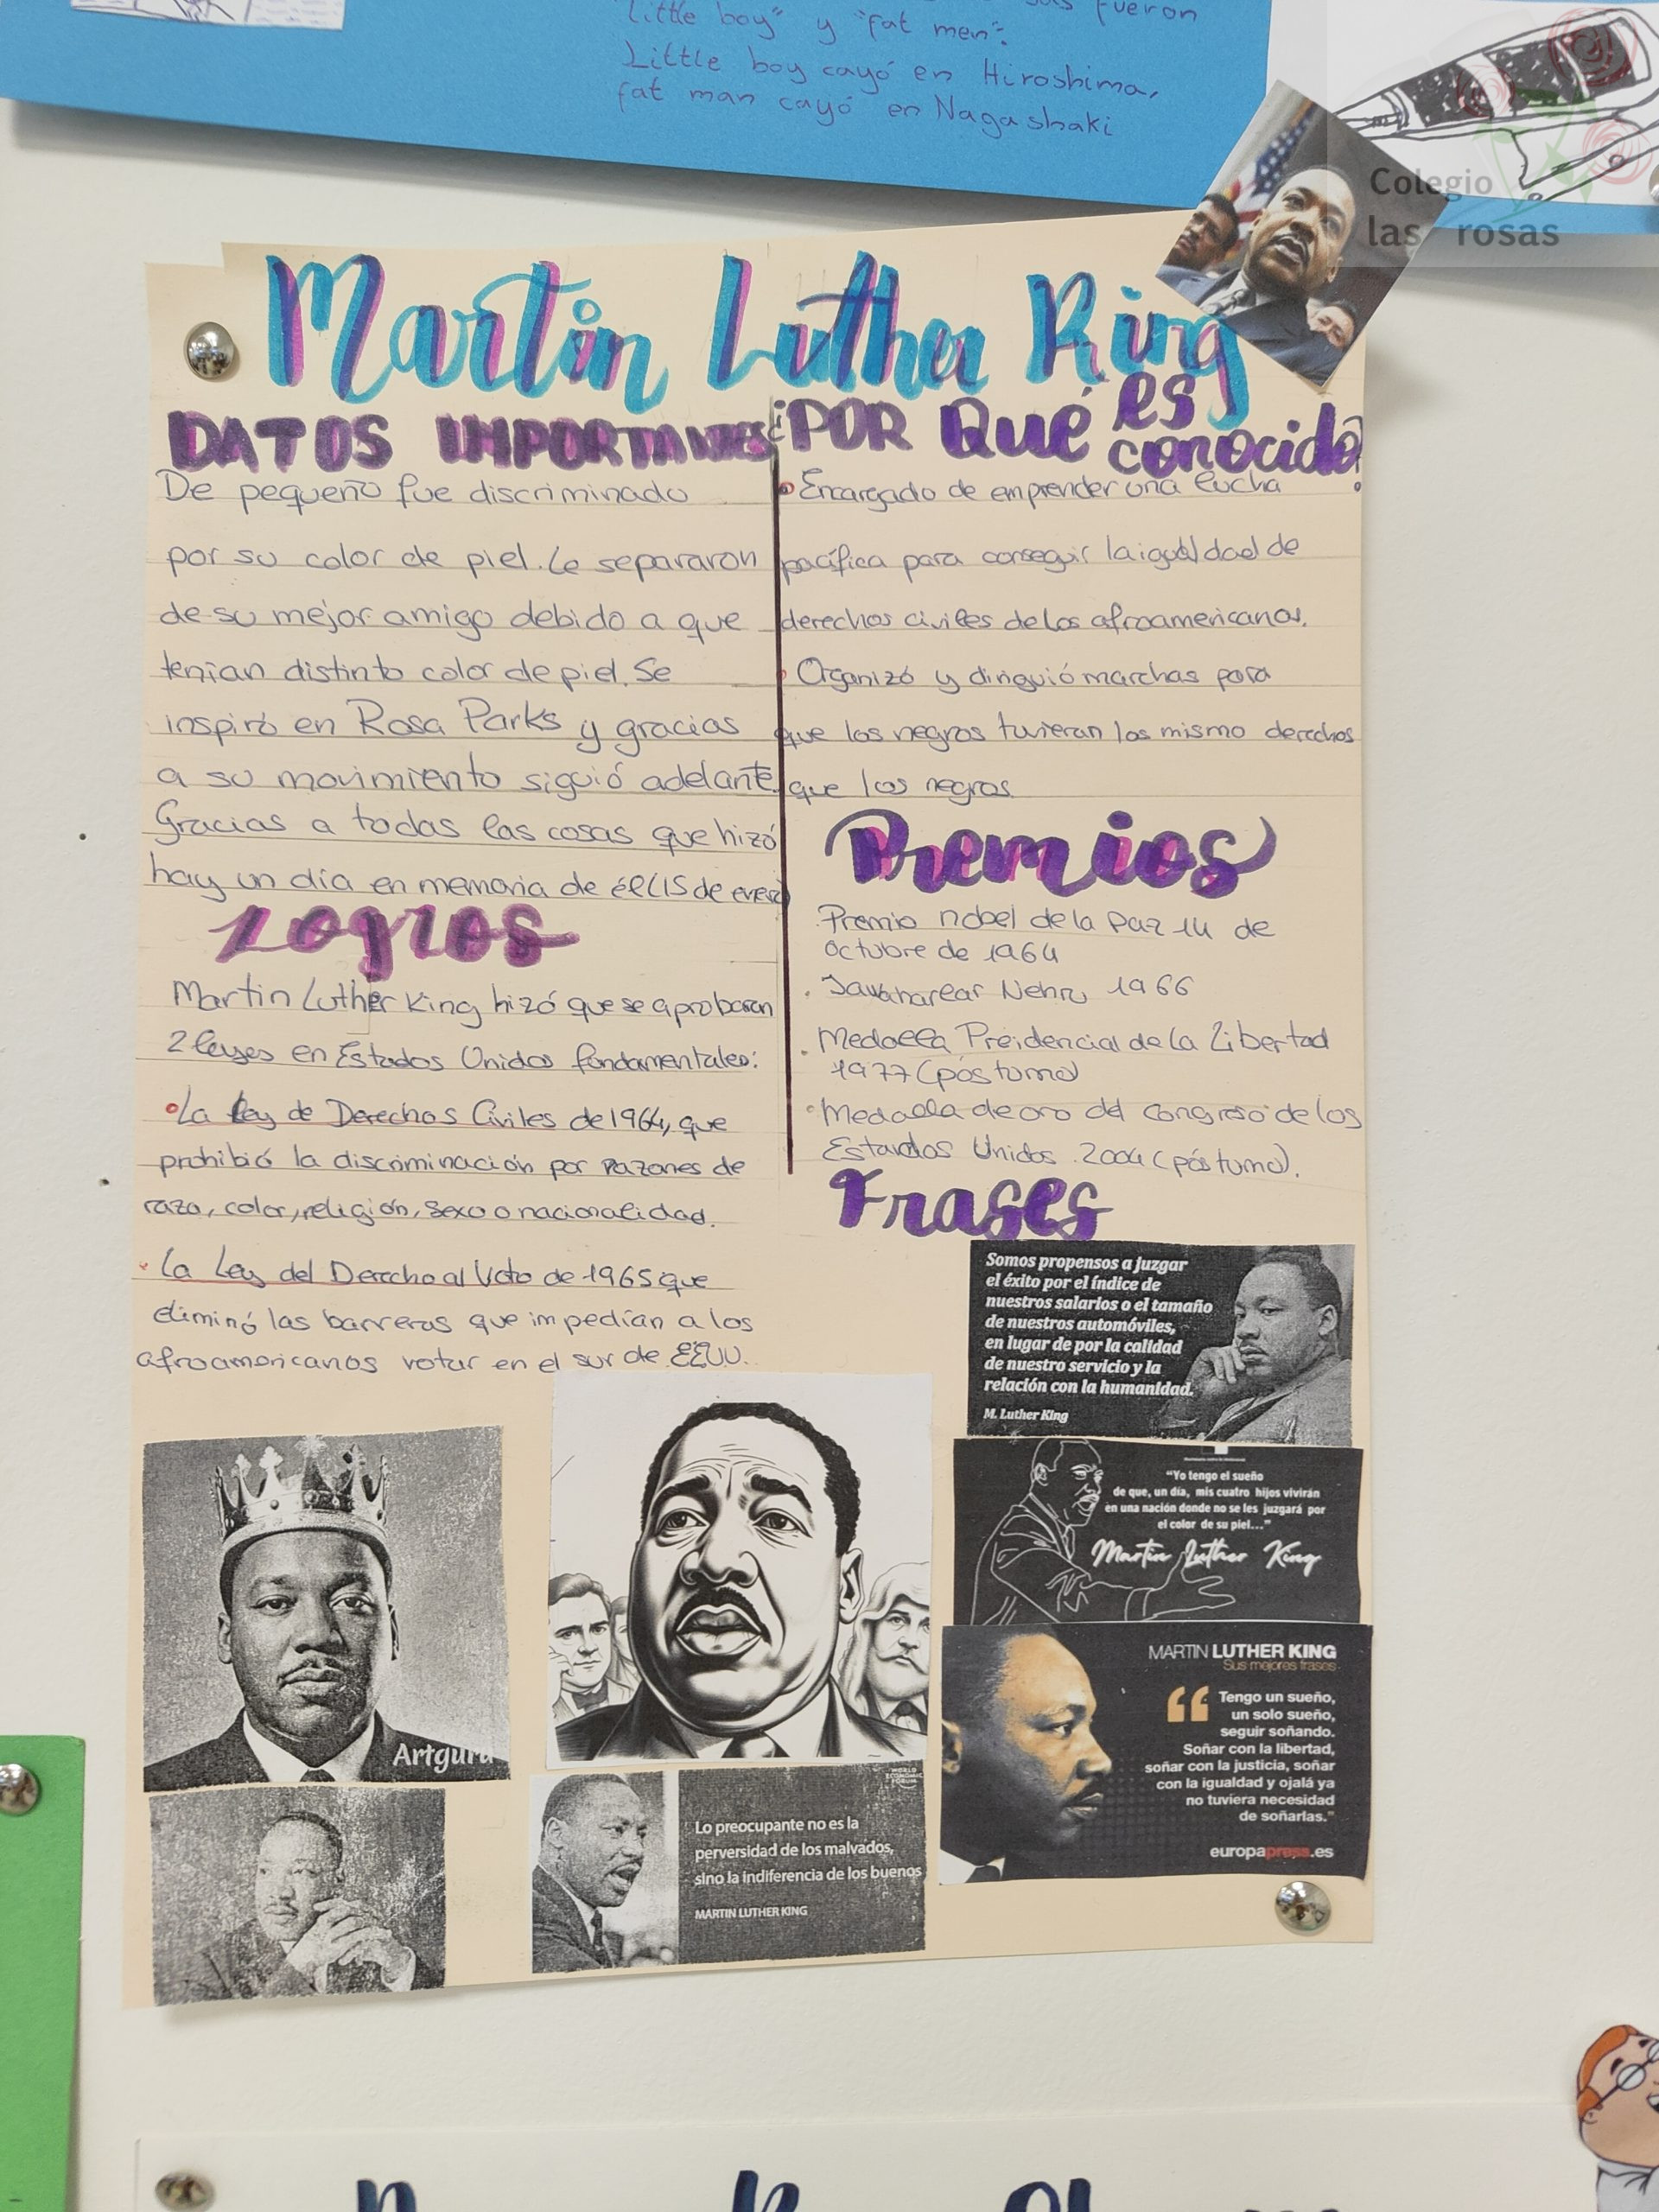 Little boy" y "fat men".
Little boy cayó en Hiroshima,
fat man cayó en Nagashaki
Colegio
las rosas
Martin Luther King
DATOS IMPORTANTES
De pequeño fue discriminado
por su color de piel. Le separaron
de su mejor amigo debido a que
tenian distinto color de piel. Se
inspiró en Rosa Parks y gracias
a su movimiento siguió adelante.
Gracias a todas las cosas que hizó
hay un día en memoria de él (15 de enero)
Logros
Martin Luther King hizó que se aprobaran
2 leyes en Estados Unidos fundamentales:
•La Ley de Derechos Civiles de 1964, que
prohibió la discriminación por razones de
raza, color, religión, sexo o nacionalidad.
• La Ley del Derecho al Voto de 1965 que
eliminó las barreras que impedían a los
afroamericanos votar en el sur de EEUU.
¿POR QUÉ es
conocido?
• Encargado de emprender una lucha
pacífica para conseguir la igualdad de
derechos civiles de los afroamericanos.
• Organizó y diriguió marchas para
que los negros tuvieran los mismo derechos
que los negros
Premios
Premio nobel de la Paz 14 de
Octubre de 1964
. Jawaharlar Nehru 1966
. Medalla Preidencial de la Libertad
1977 (póstumo)
• Medalla de oro del Congreso de los
Estados Unidos. 2004 (póstumo).
Frases
Somos propensos a juzgar
el éxito por el índice de
nuestros salarios o el tamaño
de nuestros automóviles,
en lugar de por la calidad
de nuestro servicio y la
relación con la humanidad.
M. Luther King
"Yo tengo el sueño
de que, un día, mis cuatro hijos vivirán
en una nación donde no se les juzgará por
el color de su piel..."
Martin Luther King
MARTIN LUTHER KING
Sus mejores frases
“ Tengo un sueño,
un solo sueño,
seguir soñando.
Soñar con la libertad,
soñar con la justicia, soñar
con la igualdad y ojalá ya
no tuviera necesidad
de soñarlas."
europapress.es
Artguru
WORLD
ECONOMIC
FORUM
Lo preocupante no es la
perversidad de los malvados,
sino la indiferencia de los buenos
MARTIN LUTHER KING